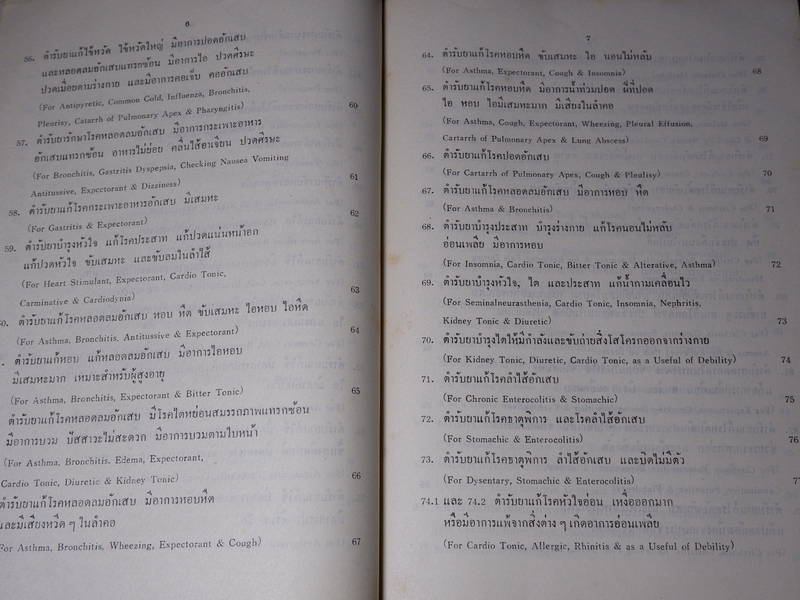 6
56. ตำรับยาแก้ไข้หวัด ไข้หวัดใหญ่ มีอาการปอดอักเสบ
และหลอดลมอักเสบแทรกซ้อน มีอาการไอ ปวดศีรษะ
ปวดเมื่อยตามร่างกาย และมีอาการคอเจ็บ คออักเสบ
(For Antipyretic, Common Cold, Influenza, Bronchitis,
Pleurisy, Catarrh of Pulmonary Apex & Pharyngitis) 60
57. ตำรับยารักษาโรคหลอดลมอักเสบ มีอาการกระเพาะอาหาร
อักเสบแทรกซ้อน อาหารไม่ย่อย คลื่นไส้อาเจียน ปวดศีรษะ
(For Bronchitis, Gastritis Dyspepsia, Checking Nausea Vomiting
Antitussive, Expectorant & Dizziness) 61
58. ตำรับยาแก้โรคกระเพาะอาหารอักเสบ มีเสมหะ
(For Gastritis & Expectorant) 62
59. ตำรับยาบำรุงหัวใจ แก้โรคประสาท แก้ปวดแน่นหน้าอก
แก้ปวดหัวใจ ขับเสมหะ และขับลมในลำไส้
(For Heart Stimulant, Expectorant, Cardio Tonic,
Carminative & Cardiodynia) 63
0. ตำรับยาแก้โรคหลอดลมอักเสบ หอบ หืด ขับเสมหะ ไอหอบ ไอหืด
(For Asthma, Bronchitis, Antitussive & Expectorant) 64
. ตำรับยาแก้หอบ แก้หลอดลมอักเสบ มีอาการไอหอบ
มีเสมหะมาก เหมาะสำหรับผู้สูงอายุ
(For Asthma, Bronchitis, Expectorant & Bitter Tonic) 65
ตำรับยาแก้โรคหลอดลมอักเสบ มีโรคไตหย่อนสมรรถภาพแทรกซ้อน
มีอาการบวม ปัสสาวะไม่สะดวก มีอาการบวมตามใบหน้า
(For Asthma, Bronchitis, Edema, Expectorant,
Cardio Tonic, Diuretic & Kidney Tonic) 66
ตำรับยาแก้โรคหลอดลมอักเสบ มีอาการหอบหืด
และมีเสียงหวีด ๆ ในลำคอ
For Asthma, Bronchitis, Wheezing, Expectorant & Cough) 67
7
64. ตำรับยาแก้โรคหอบหืด ขับเสมหะ ไอ นอนไม่หลับ
(For Asthma, Expectorant, Cough & Insomnia) 68
65. ตำรับยาแก้โรคหอบหืด มีอาการน้ำท่วมปอด ฝีที่ปอด
ไอ หอบ ไอมีเสมหะมาก มีเสียงในลำคอ
(For Asthma, Cough, Expectorant, Wheezing, Pleural Effusion,
Cartarrh of Pulmonary Apex & Lung Abscess) 69
66. ตำรับยาแก้โรคปอดอักเสบ
(For Cartarrh of Pulmonary Apex, Cough & Pleulisy) 70
67. ตำรับยาแก้โรคหลอดลมอักเสบ มีอาการหอบ หืด
(For Asthma & Bronchitis) 71
68. ตำรับยาบำรุงประสาท บำรุงร่างกาย แก้โรคนอนไม่หลับ
อ่อนเพลีย มีอาการหอบ
(For Insomnia, Cardio Tonic, Bitter Tonic & Alterative, Asthma) 72
69. ตำรับยาบำรุงหัวใจ, ไต และประสาท แก้น้ำกามเคลื่อนไว
(For Seminalneurasthenia, Cardio Tonic, Insomnia, Nephritis,
Kidney Tonic & Diuretic) 73
70. ตำรับยาบำรุงไตให้มีกำลังและขับถ่ายสิ่งโสโครกออกจากร่างกาย
(For Kidney Tonic, Diuretic, Cardio Tonic, as a Useful of Debility) 74
71. ตำรับยาแก้โรคลำไส้อักเสบ
(For Chronic Enterocolitis & Stomachic) 75
72. ตำรับยาแก้โรคธาตุพิการ และโรคลำไส้อักเสบ
(For Stomachic & Enterocolitis) 76
73. ตำรับยาแก้โรคธาตุพิการ ลำไส้อักเสบ และบิดไม่มีตัว
(For Dysentary, Stomachic & Enterocolitis) 7
74.1 และ 74.2 ตำรับยาแก้โรคหัวใจอ่อน เหงื่อออกมาก
หรือมีอาการแพ้จากสิ่งต่าง ๆ เกิดอาการอ่อนเพลีย
(For Cardio Tonic, Allergic, Rhinitis & as a Useful of Debility)